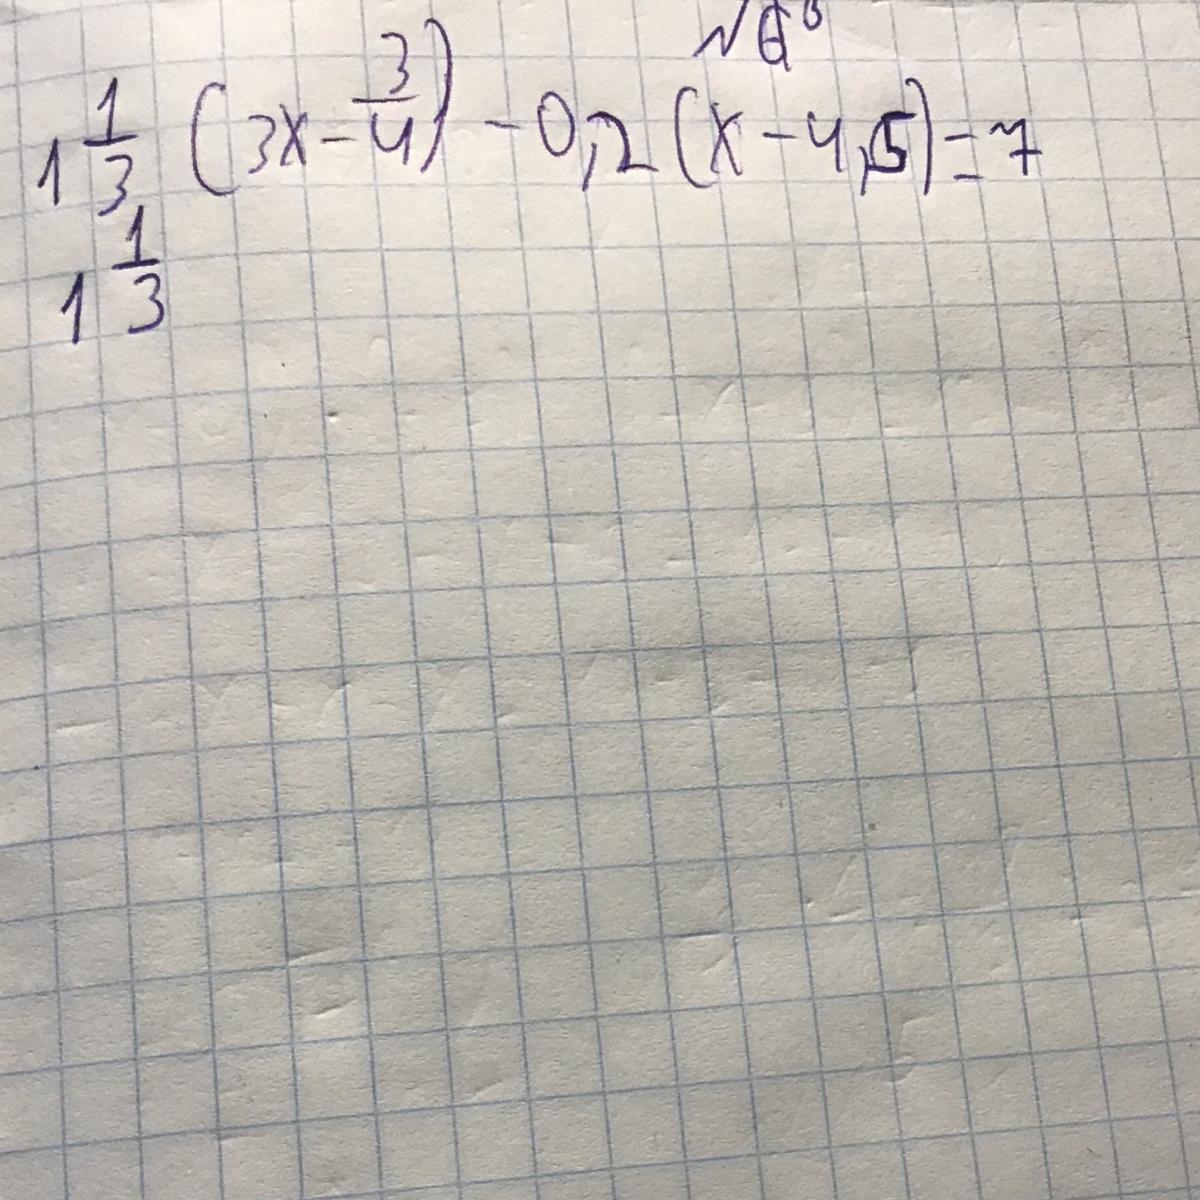 1 1/3 (3x - 3/4) - 0,2 (x - 4,5) = 7
1 1/3